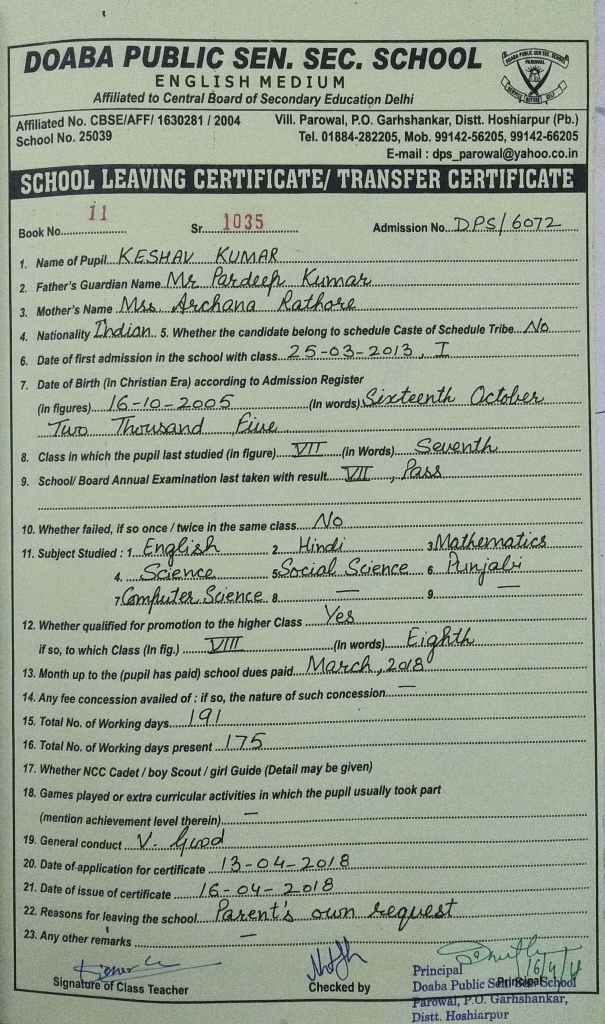 DOABA PUBLIC SEN. SEC. SCHOOL
ENGLISH MEDIUM
Affiliated to Central Board of Secondary Education Delhi
DOABA PUBLIC SEN. SEC. SCHOOL
PAROWAL
Affiliated No. CBSE/AFF/ 1630281 / 2004 Vill. Parowal, P.O. Garhshankar, Distt. Hoshiarpur (Pb.)
School No. 25039 Tel. 01884-282205, Mob. 99142-56205, 99142-66205
E-mail : dps_parowal@yahoo.co.in
SCHOOL LEAVING CERTIFICATE/ TRANSFER CERTIFICATE
Book No. 11 Sr. 1035 Admission No. DPS/6072
1. Name of Pupil KESHAV KUMAR
2. Father's Guardian Name Mr Pardeep Kumar
3. Mother's Name Mrs Archana Rathore
4. Nationality Indian 5. Whether the candidate belong to schedule Caste of Schedule Tribe No
6. Date of first admission in the school with class 25-03-2013, I
7. Date of Birth (in Christian Era) according to Admission Register
(in figures) 16-10-2005 (In words) Sixteenth October
Two Thousand Five
8. Class in which the pupil last studied (in figure) VII (in Words) Seventh
9. School/ Board Annual Examination last taken with result VII, Pass
10. Whether failed, if so once / twice in the same class No
11. Subject Studied : 1. English 2. Hindi 3 Mathematics
4. Science 5 Social Science 6 Punjabi
7 Computer Science 8 — 9 —
12. Whether qualified for promotion to the higher Class Yes
if so, to which Class (In fig.) VIII (In words) Eighth
13. Month up to the (pupil has paid) school dues paid March, 2018
14. Any fee concession availed of : if so, the nature of such concession —
15. Total No. of Working days 191
16. Total No. of Working days present 175
17. Whether NCC Cadet / boy Scout / girl Guide (Detail may be given)
18. Games played or extra curricular activities in which the pupil usually took part
(mention achievement level therein) —
19. General conduct V. Good
20. Date of application for certificate 13-04-2018
21. Date of issue of certificate 16-04-2018
22. Reasons for leaving the school Parent's own request
23. Any other remarks —
Signature of Class Teacher Checked by Principal
16/4/18
Principal
Doaba Public Sen. Sec. School
Parowal, P.O. Garhshankar,
Distt. Hoshiarpur